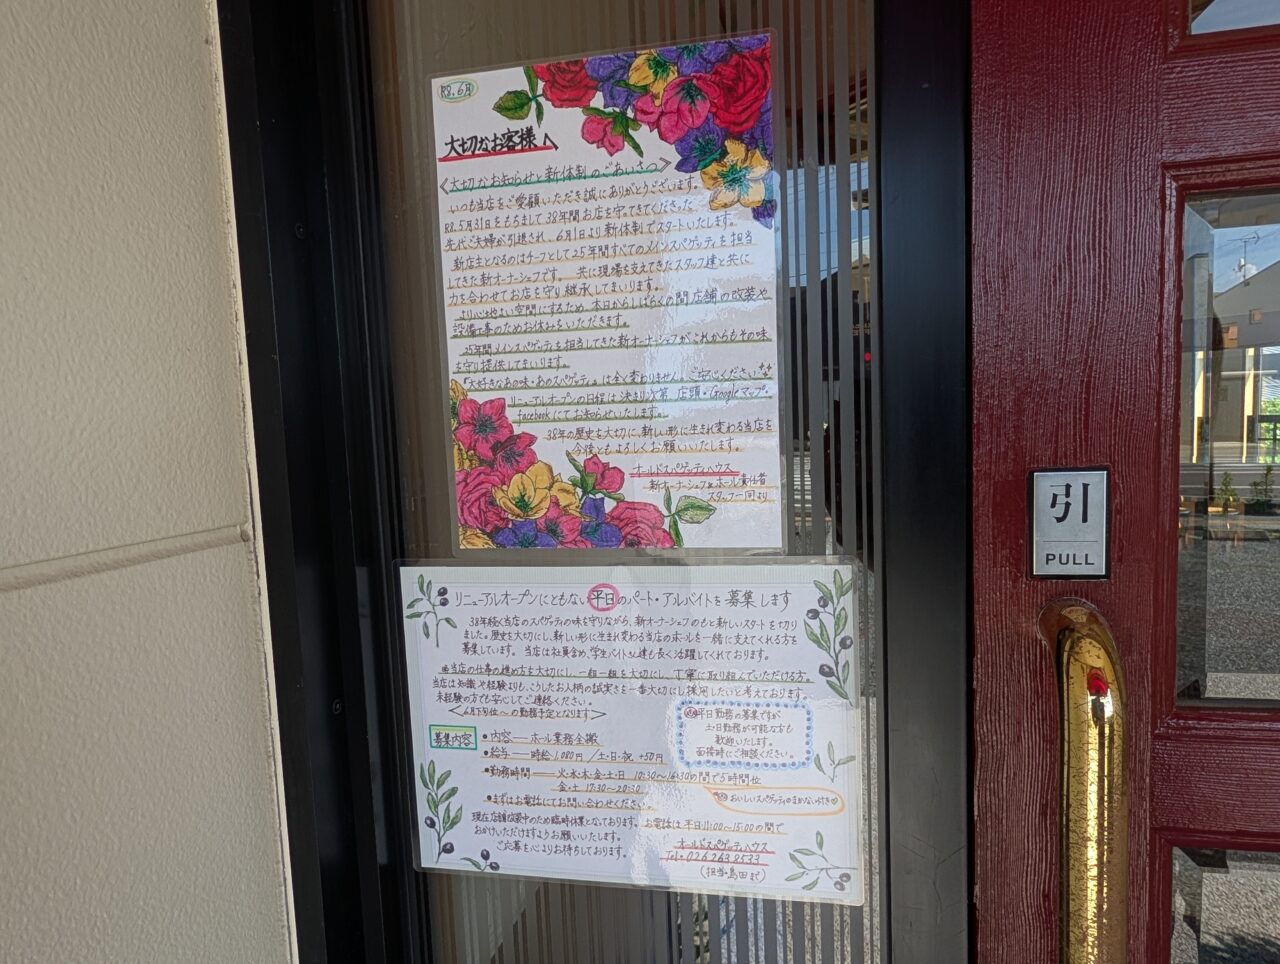 R8.6月
大切なお客様へ
《大切なお知らせと新体制のごあいさつ》
いつも当店をご愛顧いただき誠にありがとうございます。
R8.5月31日をもちまして38年間お店を守ってきてくださった
先代ご夫婦が引退され、6月1日より新体制でスタートいたします。
新店主となるのはチーフとして25年間すべてのメインスパゲッティを担当
してきた新オーナーシェフです。共に現場を支えてきたスタッフ達と共に
力を合わせてお店を守り継承してまいります。
より心地よい空間にするため、本日からしばらくの間店舗の改装や
設備工事のためお休みをいただきます。
25年間メインスパゲッティを担当してきた新オーナーシェフがこれからもその味
を守り提供してまいります。
『大好きなあの味・あのスパゲッティ』は全く変わりません。ご安心ください
リニューアルオープンの日程は決まり次第、店頭・Googleマップ・
facebookにてお知らせいたします。
38年の歴史を大切に、新しい形に生まれ変わる当店を
今後ともよろしくお願いいたします。
オールドスパゲッティハウス
新オーナーシェフとホール責任者
スタッフ一同より
リニューアルオープンにともない平日のパート・アルバイトを募集します
38年続く当店のスパゲッティの味を守りながら、新オーナーシェフのもと新しいスタートを切り
ました。歴史を大切にし、新しい形に生まれ変わる当店のホールを一緒に支えてくれる方を
募集しています。当店は社員含め、学生バイトさん達も長く活躍してくれております。
※当店の仕事の進め方を大切にし、一組一組を大切にし、丁寧に取り組んでいただける方。
当店は知識や経験よりも、こうしたお人柄の誠実さを一番大切にし採用したいと考えております。
未経験の方でも安心してご連絡ください。
＜6月下旬位〜の勤務予定となります＞
平日勤務の募集ですが
土・日勤務が可能な方も
歓迎いたします。
面接時にご相談ください。
募集内容
・内容ーホール業務全般
・給与ー時給1,080円／土・日・祝 +50円
・勤務時間ー火・水・木・金・土・日 10:30〜16:30の間で5時間位
金・土 17:30〜20:30
おいしいスパゲッティのまかない付き♡
・まずはお電話にてお問い合わせください。
現在店舗改装中のため臨時休業となっております。お電話は平日11:00〜15:00の間で
おかけいただけますようお願いいたします。
ご応募を心よりお待ちしております。
オールドスパゲッティハウス
Tel 026 263 8533
(担当・島田まで)
引
PULL